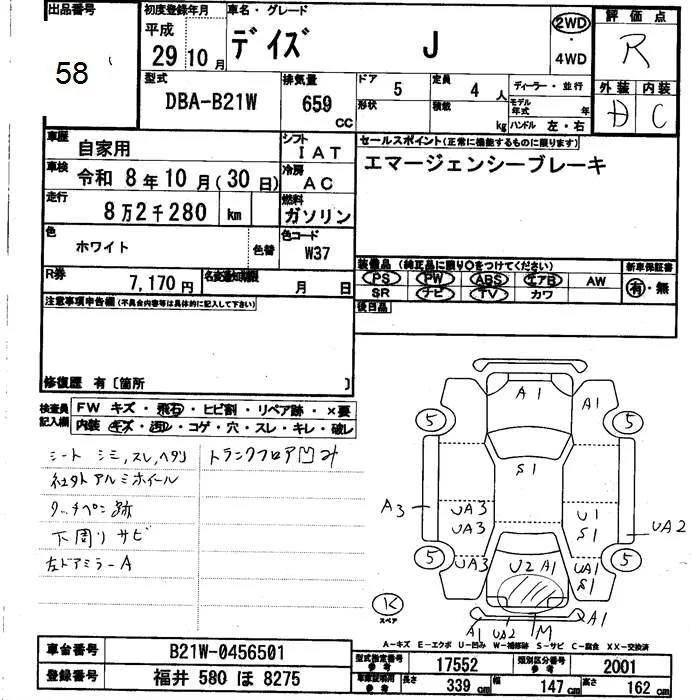 出品番号
58
初度登録年月
平成
29 10 月
車名・グレード
デイズ J
2WD
・
4WD
評価点
R
型式
DBA-B21W
排気量
659
CC
ドア 5
定員 4 人
形状
積載 kg
ディーラー・並行
モデル年式 年
ハンドル 左・右
外装 内装
C
車歴
自家用
シフト
IAT
車検
令和 8年10月(30日)
冷房
AC
走行
8万2千280 km
燃料
ガソリン
色
ホワイト
色替
色コード
W37
R券
7,170円
名変期限
月 日
セールスポイント(正常に機能するものに限ります)
エマージェンシーブレーキ
装備品 (純正品に限り○をつけてください)
新車保証書
PS PW ABS エアB AW
有・無
SR ナビ TV カワ
後日品
注意事項申告欄(不具合内容等は具体的に記入して下さい)
修復歴 有〔箇所 〕
検査員記入欄
FW キズ・飛石・ヒビ割・リペア跡・×要
内装 キズ・汚レ・コゲ・穴・スレ・キレ・破レ
シート シミ,スレ,ヘタリ
トランクフロア凹み
社外アルミホイール
タッチペン跡
下周りサビ
左ドアミラーA
A1
A1
5
5
S1
A3
UA3
UA3
U1
S1
UA2
5
5
UA3
U2 A1
UA1
S1
K
スペア
A1
UA2
M
A1
A-キズ E-エクボ U-凹み W-補修跡 S-サビ C-腐食 XX-交換済
車台番号
B21W-0456501
登録番号
福井 580 ほ 8275
型式指定番号
参考
17552
類別区分番号
参考
2001
車庫証明用
参考
長さ 339 cm
幅 147 cm
高さ 162 cm